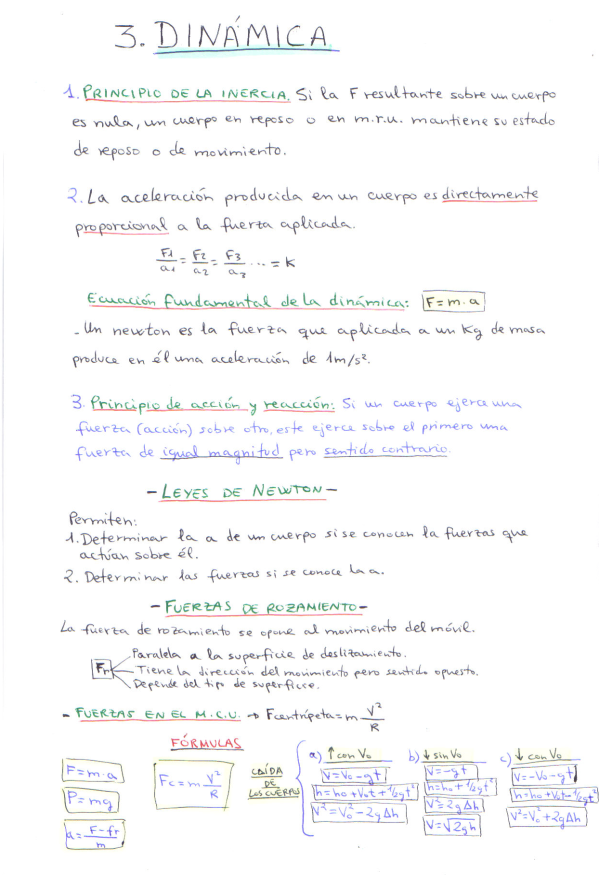 3. DINÁMICA
1. PRINCIPIO DE LA INERCIA. Si la F resultante sobre un cuerpo
es nula, un cuerpo en reposo o en m.r.u. mantiene su estado
de reposo o de movimiento.
2. La aceleración producida en un cuerpo es directamente
proporcional a la fuerza aplicada.
F1/a1 = F2/a2 = F3/a3 ... = K
Ecuación fundamental de la dinámica: F = m·a
- Un newton es la fuerza que aplicada a un Kg de masa
produce en él una aceleración de 1m/s².
3. Principio de acción y reacción: Si un cuerpo ejerce una
fuerza (acción) sobre otro, este ejerce sobre el primero una
fuerza de igual magnitud pero sentido contrario.
- LEYES DE NEWTON -
Permiten:
1. Determinar la a de un cuerpo si se conocen la fuerzas que
actúan sobre él.
2. Determinar las fuerzas si se conoce la a.
- FUERZAS DE ROZAMIENTO -
La fuerza de rozamiento se opone al movimiento del móvil.
Fr
Paralela a la superficie de deslizamiento.
Tiene la dirección del movimiento pero sentido opuesto.
Depende del tipo de superficie.
- FUERZAS EN EL M.C.U. → Fcentrípeta = m V²/R
FÓRMULAS
F = m·a
P = mg
a = F - fr/m
Fc = m V²/R
CAÍDA
DE
LOS CUERPOS
a) ↑ con Vo
V = Vo - gt
h = ho + Vot + 1/2gt²
V² = Vo² - 2gΔh
b) ↓ sin Vo
V = -gt
h = ho + 1/2gt²
V² = 2gΔh
V = √2gh
c) ↓ con Vo
V = -Vo - gt
h = ho + Vot - 1/2gt²
V² = Vo² + 2gΔh